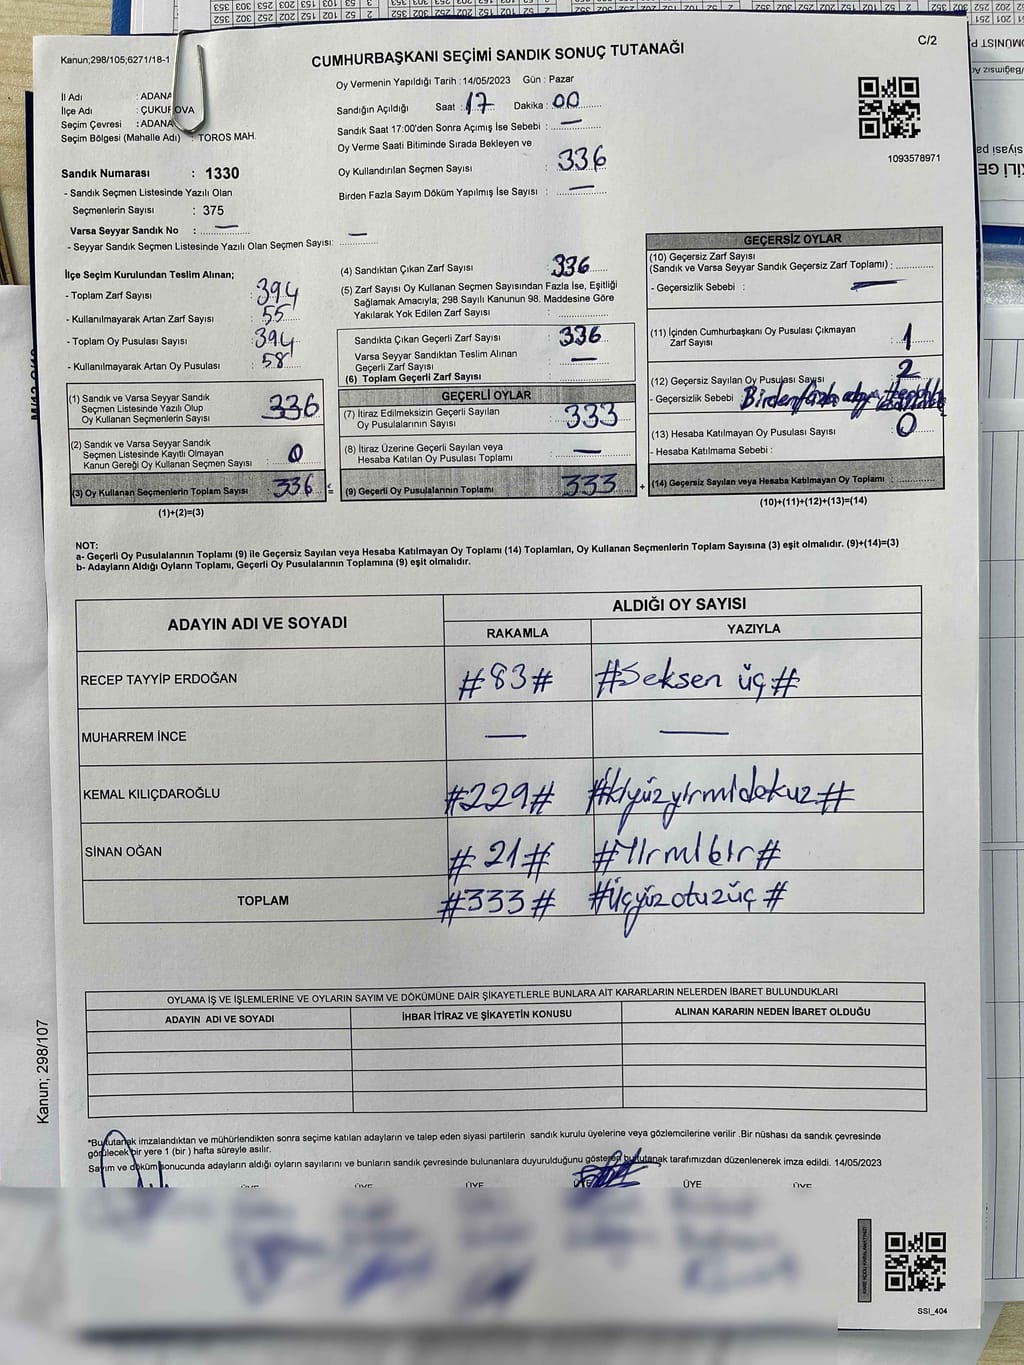 C/2
Kanun;298/105;6271/18-1
CUMHURBAŞKANI SEÇİMİ SANDIK SONUÇ TUTANAĞI
İl Adı : ADANA
İlçe Adı : ÇUKUROVA
Seçim Çevresi : ADANA
Seçim Bölgesi (Mahalle Adı) : TOROS MAH.
Oy Vermenin Yapıldığı Tarih :14/05/2023 Gün : Pazar
Sandığın Açıldığı Saat : 17 Dakika : 00
Sandık Saat 17:00'den Sonra Açımış İse Sebebi : —
Oy Verme Saati Bitiminde Sırada Bekleyen ve
Oy Kullandırılan Seçmen Sayısı : 336
Birden Fazla Sayım Döküm Yapılmış İse Sayısı : —
1093578971
Sandık Numarası : 1330
- Sandık Seçmen Listesinde Yazılı Olan
Seçmenlerin Sayısı : 375
Varsa Seyyar Sandık No : —
- Seyyar Sandık Seçmen Listesinde Yazılı Olan Seçmen Sayısı: —
İlçe Seçim Kurulundan Teslim Alınan;
- Toplam Zarf Sayısı : 394
- Kullanılmayarak Artan Zarf Sayısı : 55
- Toplam Oy Pusulası Sayısı : 394
- Kullanılmayarak Artan Oy Pusulası : 58
(1) Sandık ve Varsa Seyyar Sandık
Seçmen Listesinde Yazılı Olup
Oy Kullanan Seçmenlerin Sayısı : 336
(2) Sandık ve Varsa Seyyar Sandık
Seçmen Listesinde Kayıtlı Olmayan
Kanun Gereği Oy Kullanan Seçmen Sayısı : 0
(3) Oy Kullanan Seçmenlerin Toplam Sayısı : 336
(1)+(2)=(3)
(4) Sandıktan Çıkan Zarf Sayısı : 336
(5) Zarf Sayısı Oy Kullanan Seçmen Sayısından Fazla İse, Eşitliği
Sağlamak Amacıyla; 298 Sayılı Kanunun 98. Maddesine Göre
Yakılarak Yok Edilen Zarf Sayısı :
Sandıkta Çıkan Geçerli Zarf Sayısı : 336
Varsa Seyyar Sandıktan Teslim Alınan
Geçerli Zarf Sayısı : —
(6) Toplam Geçerli Zarf Sayısı :
GEÇERLİ OYLAR
(7) İtiraz Edilmeksizin Geçerli Sayılan
Oy Pusulalarının Sayısı : 333
(8) İtiraz Üzerine Geçerli Sayılan veya
Hesaba Katılan Oy Pusulası Toplamı : —
= (9) Geçerli Oy Pusulalarının Toplamı : 333 +
GEÇERSİZ OYLAR
(10) Geçersiz Zarf Sayısı
(Sandık ve Varsa Seyyar Sandık Geçersiz Zarf Toplamı) :
- Geçersizlik Sebebi : —
(11) İçinden Cumhurbaşkanı Oy Pusulası Çıkmayan
Zarf Sayısı : 1
(12) Geçersiz Sayılan Oy Pusulası Sayısı : 2
- Geçersizlik Sebebi : Birden fazla
(13) Hesaba Katılmayan Oy Pusulası Sayısı : 0
- Hesaba Katılmama Sebebi :
(14) Geçersiz Sayılan veya Hesaba Katılmayan Oy Toplamı :
(10)+(11)+(12)+(13)=(14)
NOT:
a- Geçerli Oy Pusulalarının Toplamı (9) ile Geçersiz Sayılan veya Hesaba Katılmayan Oy Toplamı (14) Toplamları, Oy Kullanan Seçmenlerin Toplam Sayısına (3) eşit olmalıdır. (9)+(14)=(3)
b- Adayların Aldığı Oyların Toplamı, Geçerli Oy Pusulalarının Toplamına (9) eşit olmalıdır.
ADAYIN ADI VE SOYADI ALDIĞI OY SAYISI
RAKAMLA YAZIYLA
RECEP TAYYİP ERDOĞAN #83# #Seksen üç#
MUHARREM İNCE — —
KEMAL KILIÇDAROĞLU #229# #İkiyüzyirmidokuz#
SİNAN OĞAN #21# #Yirmibir#
TOPLAM #333# #Üçyüzotuzüç#
OYLAMA İŞ VE İŞLEMLERİNE VE OYLARIN SAYIM VE DÖKÜMÜNE DAİR ŞİKAYETLERLE BUNLARA AİT KARARLARIN NELERDEN İBARET BULUNDUKLARI
ADAYIN ADI VE SOYADI İHBAR İTİRAZ VE ŞİKAYETİN KONUSU ALINAN KARARIN NEDEN İBARET OLDUĞU
Kanun; 298/107
*Bu tutanak imzalandıktan ve mühürlendikten sonra seçime katılan adayların ve talep eden siyasi partilerin sandık kurulu üyelerine veya gözlemcilerine verilir .Bir nüshası da sandık çevresinde
görülecek bir yere 1 (bir ) hafta süreyle asılır.
Sayım ve döküm sonucunda adayların aldığı oyların sayılarını ve bunların sandık çevresinde bulunanlara duyurulduğunu gösteren bu tutanak tarafımızdan düzenlenerek imza edildi. 14/05/2023
ÜYE ÜYE ÜYE ÜYE ÜYE ÜYE
SSI_404